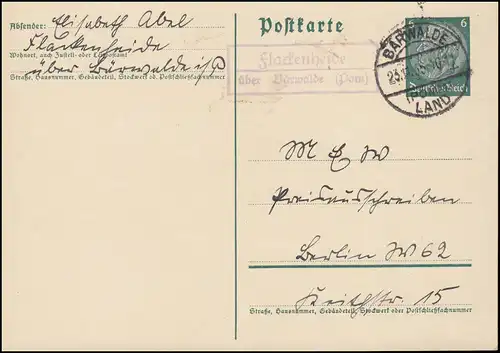 Absender: Elisabeth Abel
Flackenheide
Wohnort, auch Zustell- oder Leitpostamt
über Bärwalde i/P
Straße, Hausnummer, Gebäudeteil, Stockwerk od. Postschließfachnummer
Postkarte
Flackenheide
über Bärwalde (Pom)
BÄRWALDE
LAND
6 6
Deutsches Reich
M E W
Preisausschreiben
Berlin W 62
Keithstr. 15
Straße, Hausnummer, Gebäudeteil, Stockwerk oder Postschließfachnummer